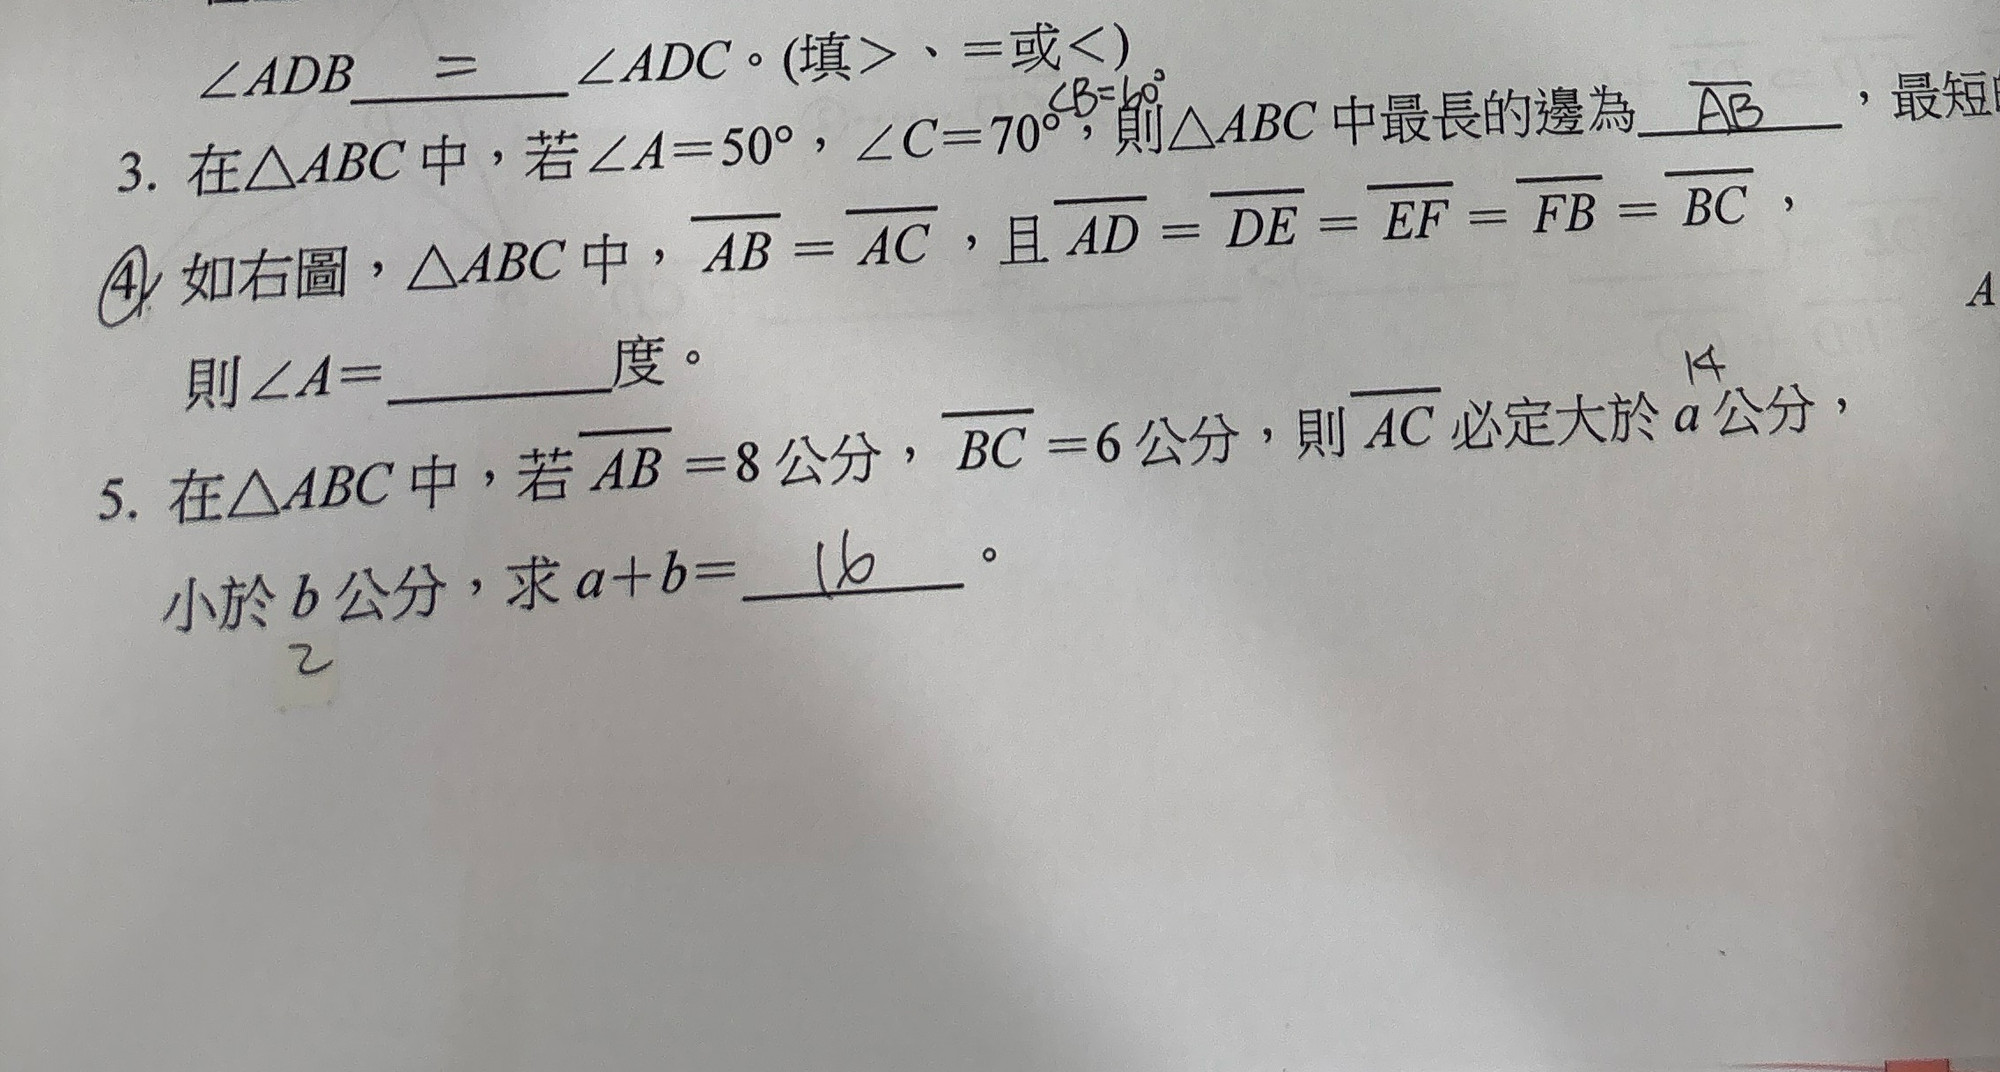 ∠ADB = ∠ADC。(填>、=或<)
∠B=60°
3. 在△ABC中，若∠A=50°，∠C=70°，則△ABC中最長的邊為 AB ，最短
④ 如右圖，△ABC中，AB=AC，且AD=DE=EF=FB=BC，
A
則∠A=______度。
14
5. 在△ABC中，若AB=8公分，BC=6公分，則AC必定大於a公分，
小於b公分，求a+b= 16 。
2